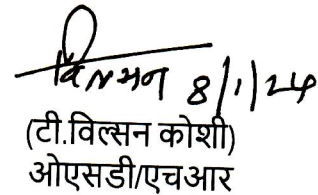 विल्सन 8/1/24
(टी.विल्सन कोशी)
ओएसडी/एचआर